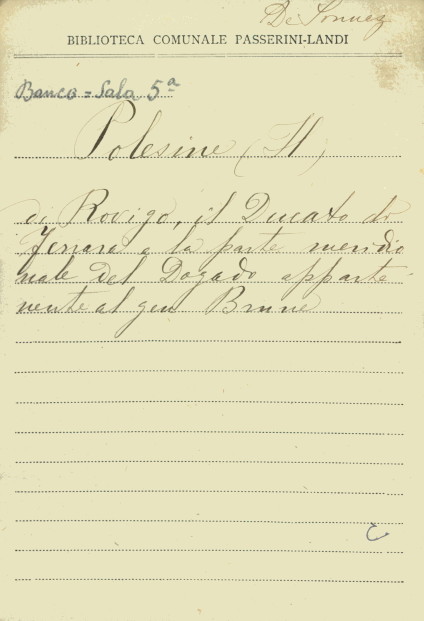 De
BIBLIOTECA COMUNALE PASSERINI-LANDI
Banco = Sala 5ª
Polesine (Il)
di Rovigo, il Ducato di
Ferrara e la parte meridio
nale del Dogado apparte
nente al gen Brune
C